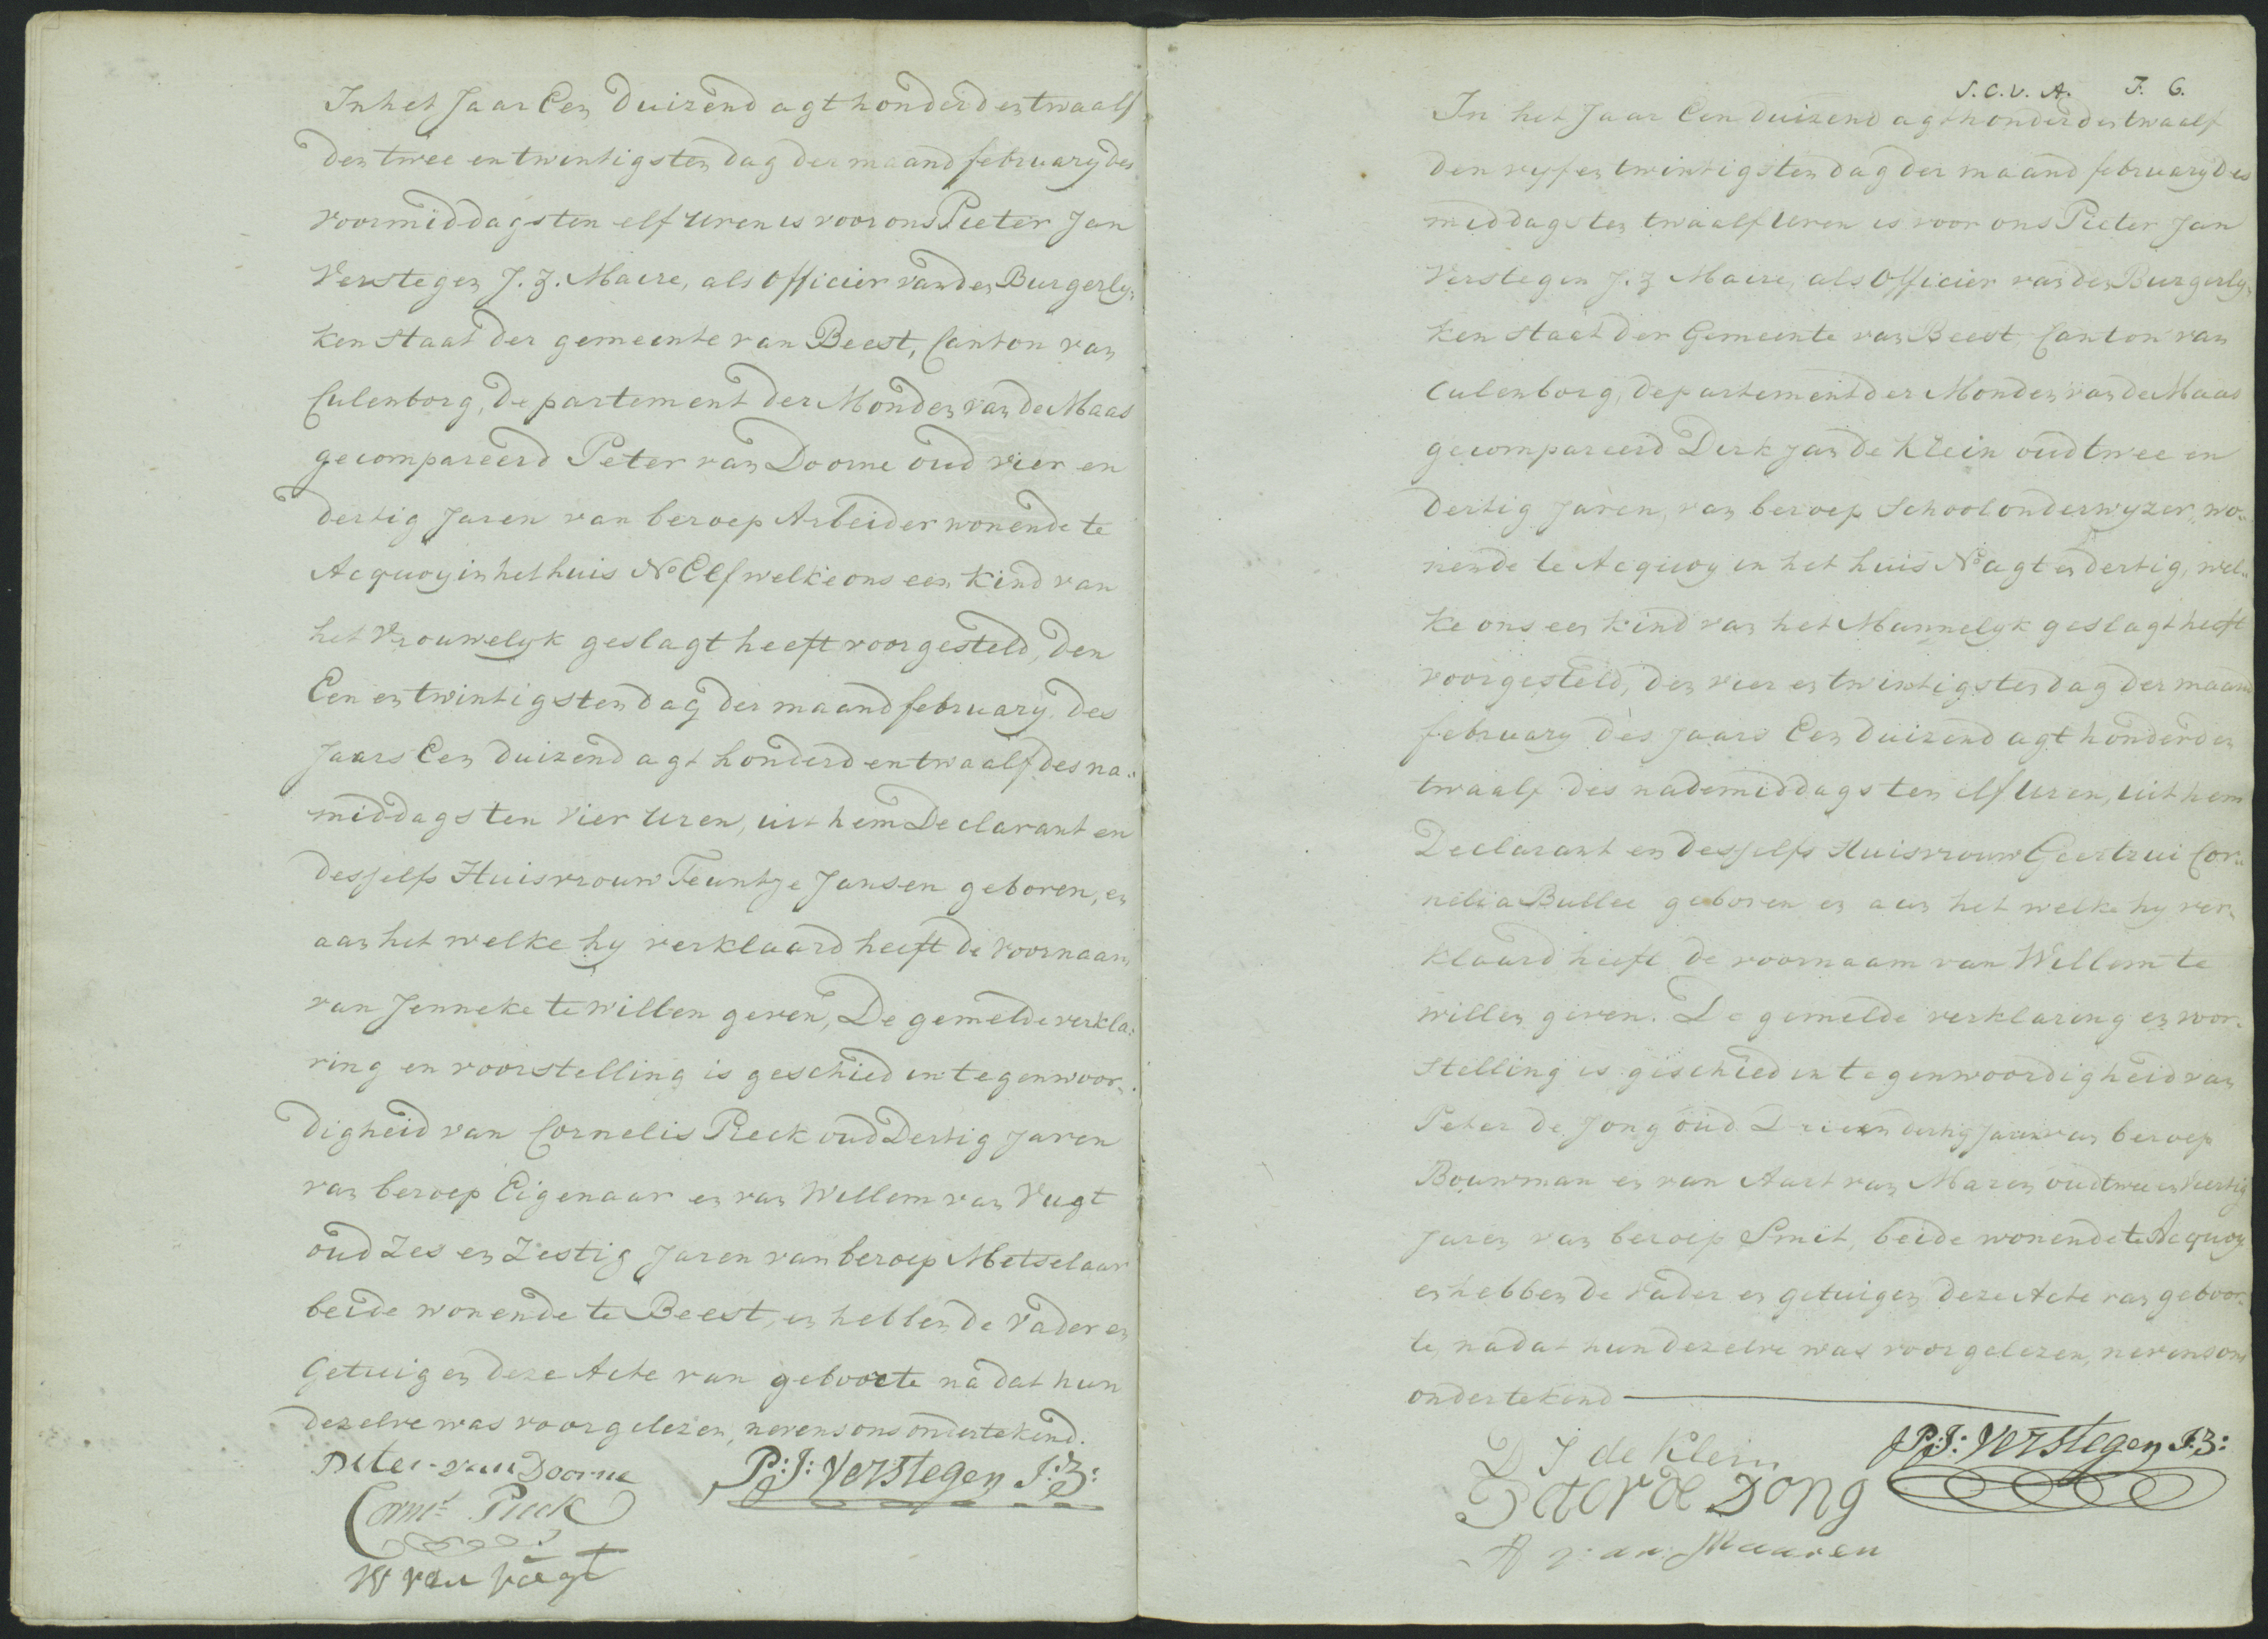 In het Jaar Een Duizend agt honderd en twaalf
den twee en twintigsten dag der maand february des
voormiddags ten elf uren is voor ons Pieter Jan
Verstegen J. Z. Maire, als Officier van den Burgerly„
ken Staat der gemeente van Beest, Canton van
Culenborg, departement der Monden van de Maas
gecompareerd Peter van Doorne oud vier en
dertig Jaren van beroep Arbeider wonende te
Acquoy in het huis No Elf welke ons een kind van
het Vrouwelyk geslagt heeft voorgesteld, den
Een en twintigsten dag der maand february des
Jaars Een duizend agt honderd en twaalf des na„
middags ten Vier Uren, uit hem Declarant en
desselfs Huisvrouw Teuntje Jansen geboren, en
aan het welke hy verklaard heeft de voornaam
van Jenneke te willen geven, De gemelde verkla„
ring en voorstelling is geschied in tegenwoor„
digheid van Cornelis Pieck oud Dertig Jaren
van beroep Eigenaar en van Willem van Vugt
oud Zes en Zestig Jaren van beroep Metselaar
beide wonende te Beest, en hebben de Vader en
Getuigen deze Acte van geboorte na dat hun
dezelve was voorgelezen, nevens ons ondertekend.
Peter van Doorne
P: J: Verstegen J: Z:
Corns Pieck
W van Vugt
S. C. V. A. F. 6.
In het Jaar Een duizend agt honderd en twaalf
den vyf en twintigsten dag der maand february des
middags ten twaalf Uren is voor ons Pieter Jan
Verstegen J. Z Maire, als Officier van den Burgerly„
ken Staat der Gemeente van Beest, Canton van
Culenborg, departement der Monden van de Maas
gecompareerd Dirk Jan de Klein oud twee en
Dertig Jaren, van beroep Schoolonderwyzer, wo„
nende te Acquoy in het huis No agt en dertig, wel„
ke ons een kind van het Mannelyk geslagt heeft
voorgesteld, den vier en twintigsten dag der maand
february des Jaars Een duizend agt honderd en
twaalf des nademiddags ten elf Uren, uit hem
Declarant en desselfs Huisvrouw Geertrui Cor„
nelia Bullee geboren en aan het welke hy ver„
klaard heeft de voornaam van Willem te
willen geven. De gemelde verklaring en voor„
stelling is geschied in tegenwoordigheid van
Peter de Jong oud Drie en dertig Jaren van beroep
Bouwman en van Aart van Maren oud twee en Veertig
Jaren van beroep Smit, beide wonende te Acquoy
en hebben de Vader en getuigen deze Acte van geboor„
te, nadat hun dezelve was voorgelezen, nevens ons
ondertekend
D J de Klein
P: J: Verstegen J: Z:
Peter de Jong
A van Maaren